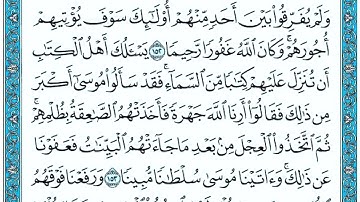 وَلَمْ يُفَرِّقُوا۟ بَيْنَ أَحَدٍ مِّنْهُمْ أُو۟لَٰٓئِكَ سَوْفَ يُؤْتِيهِمْ
أُجُورَهُمْ ۗ وَكَانَ ٱللَّهُ غَفُورًا رَّحِيمًا ١٥٢ يَسْـَٔلُكَ أَهْلُ ٱلْكِتَٰبِ
أَن تُنَزِّلَ عَلَيْهِمْ كِتَٰبًا مِّنَ ٱلسَّمَآءِ ۚ فَقَدْ سَأَلُوا۟ مُوسَىٰٓ أَكْبَرَ
مِن ذَٰلِكَ فَقَالُوٓا۟ أَرِنَا ٱللَّهَ جَهْرَةً فَأَخَذَتْهُمُ ٱلصَّٰعِقَةُ بِظُلْمِهِمْ ۚ
ثُمَّ ٱتَّخَذُوا۟ ٱلْعِجْلَ مِنۢ بَعْدِ مَا جَآءَتْهُمُ ٱلْبَيِّنَٰتُ فَعَفَوْنَا
عَن ذَٰلِكَ ۚ وَءَاتَيْنَا مُوسَىٰ سُلْطَٰنًا مُّبِينًا ١٥٣ وَرَفَعْنَا فَوْقَهُمُ